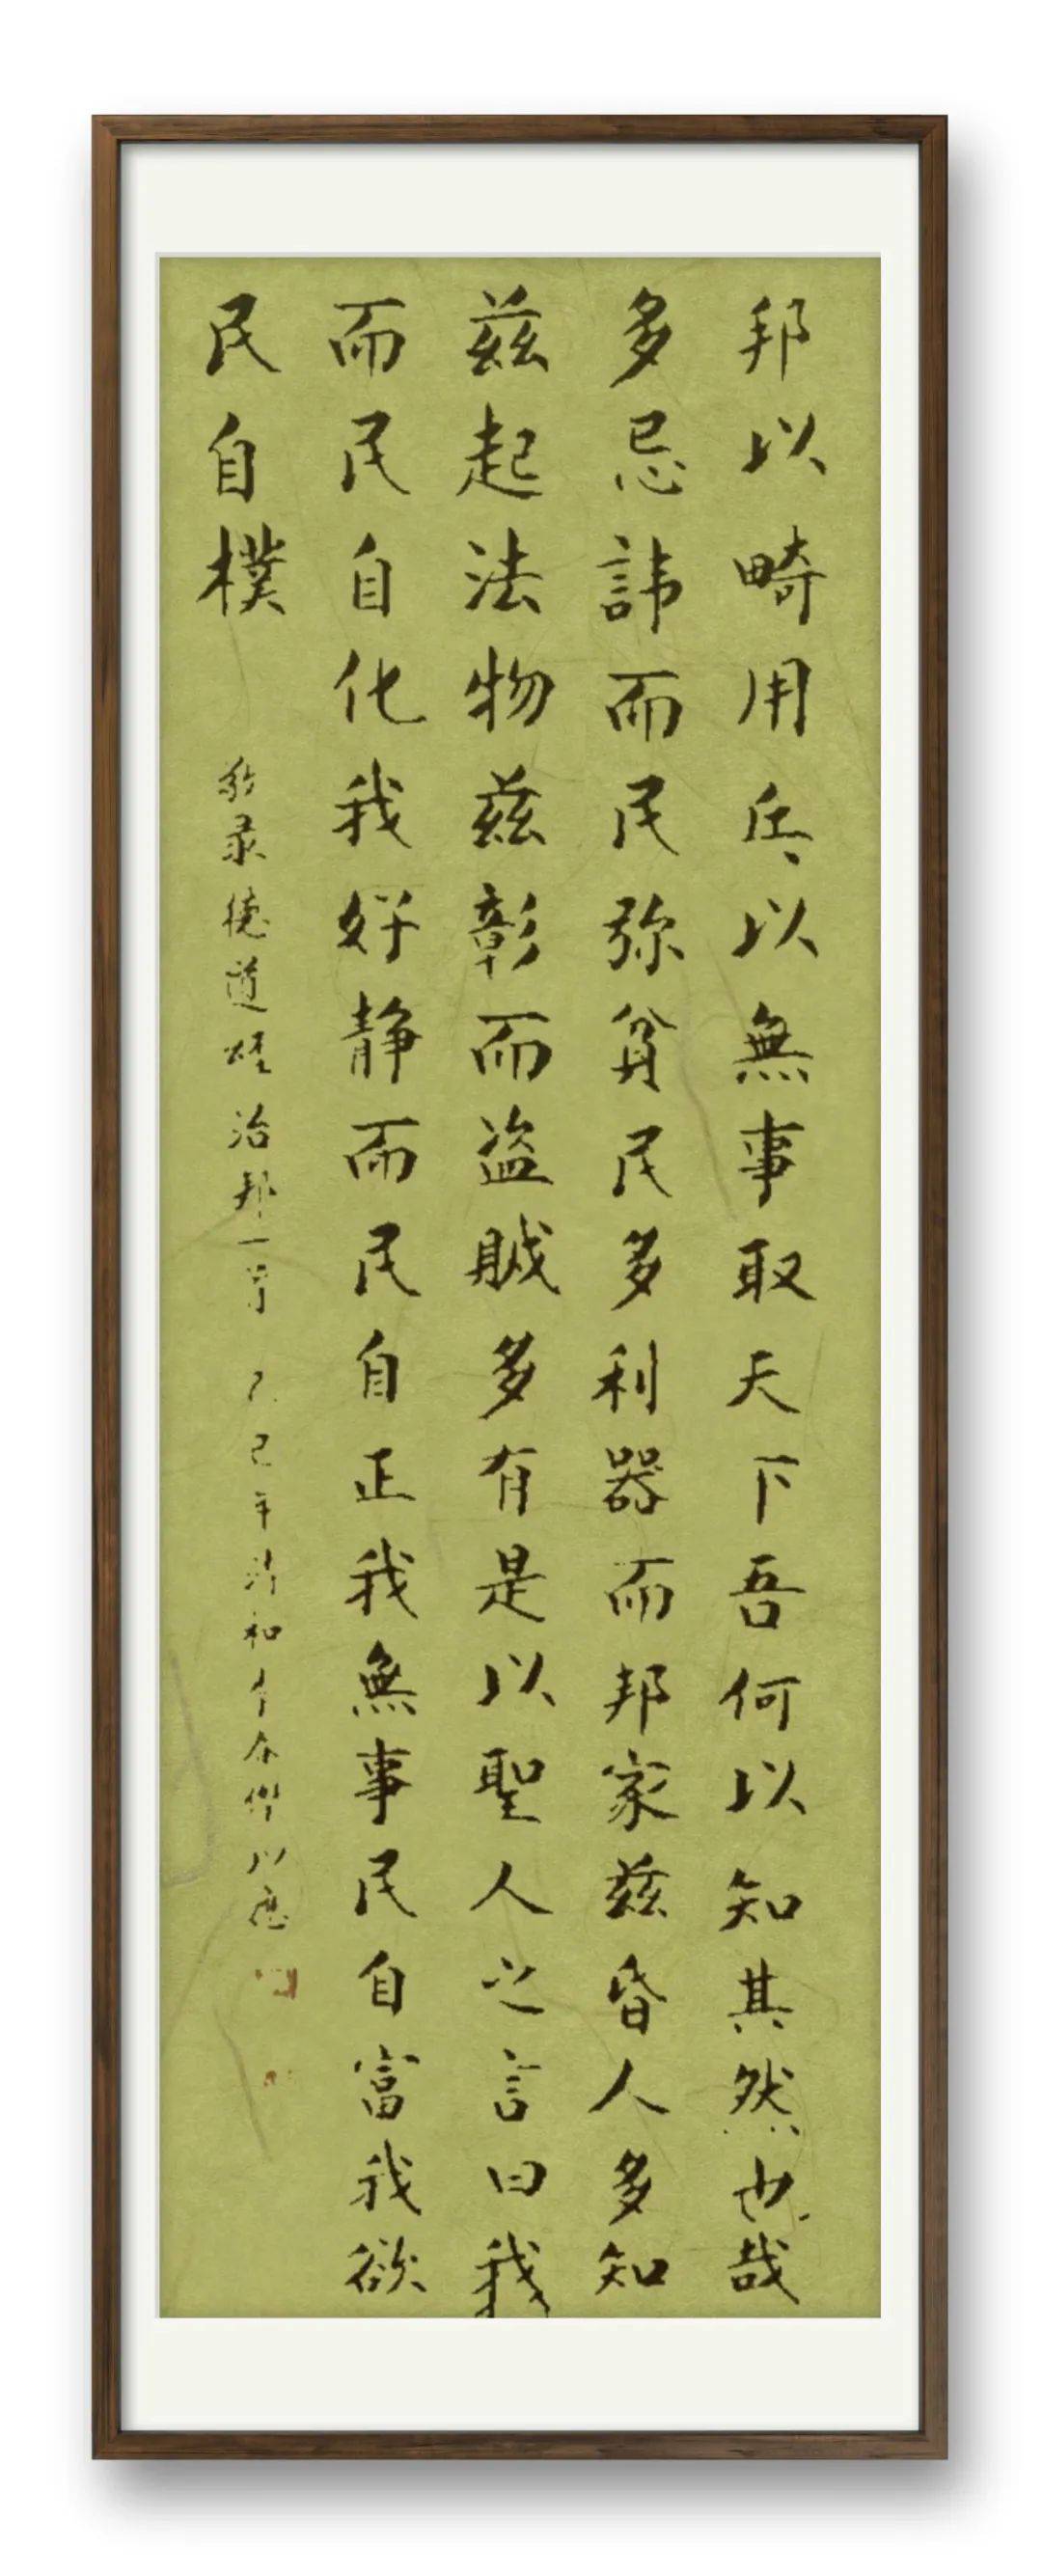 邦以畸用兵以無事取天下吾何以知其然也哉
多忌諱而民弥貧民多利器而邦家兹昏人多知
兹起法物兹彰而盗賊多有是以聖人之言曰我
而民自化我好静而民自正我無事民自富我欲
民自樸
敬录德道經治邦一章 乙巳年清和